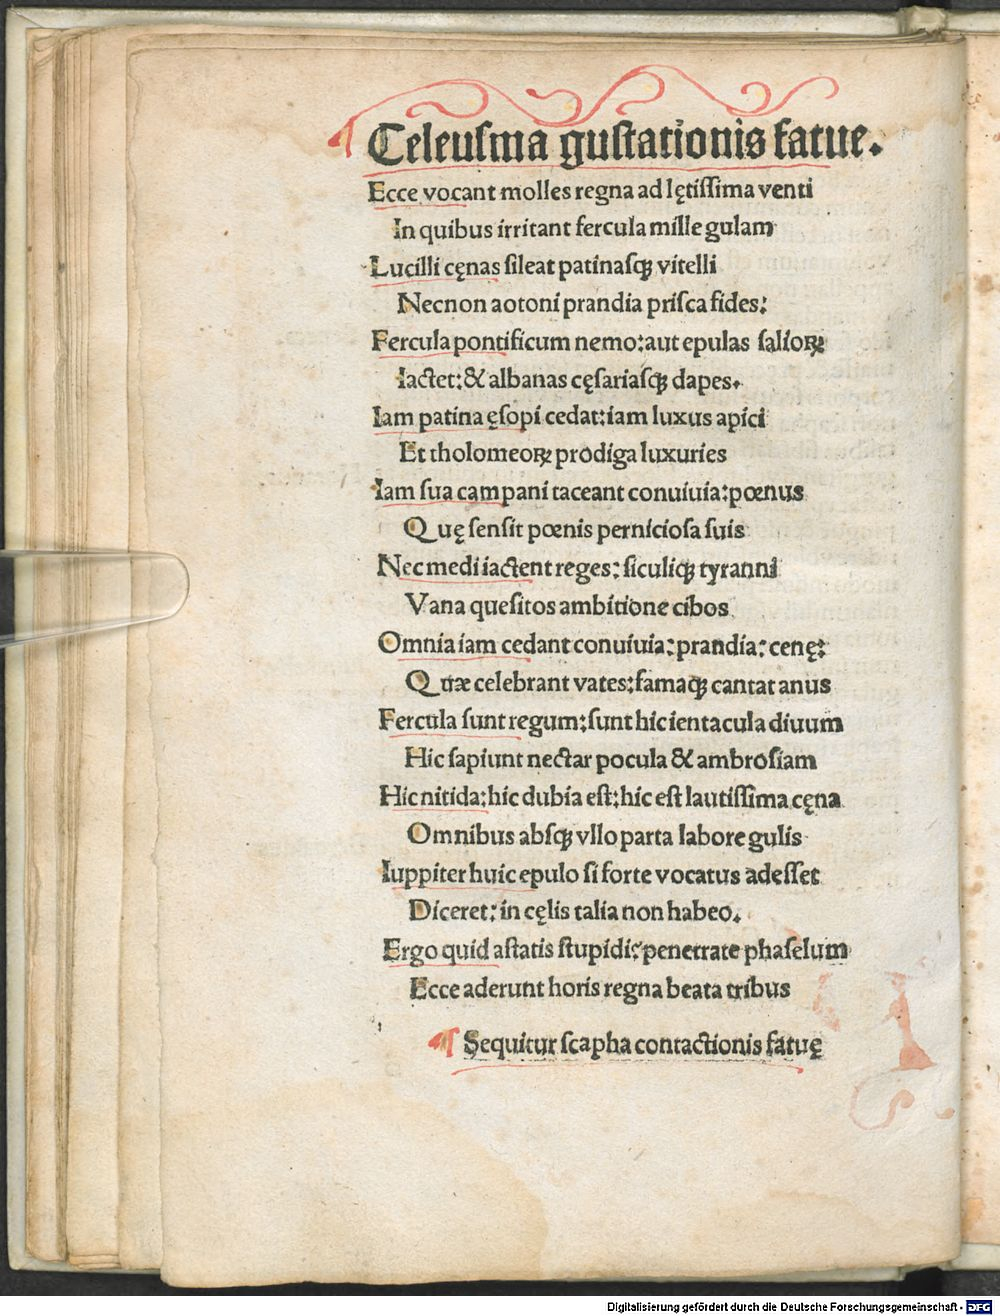 ¶ Celeuſma guſtationis fatue.
Ecce vocant molles regna ad lętiſſima venti
In quibus irritant fercula mille gulam
Lucilli cęnas ſileat patinaſqꝫ vitelli
Necnon aotoni prandia priſca fides:
Fercula pontificum nemo: aut epulas ſalioꝝ
Iactet: & albanas cęſariaſqꝫ dapes.
Iam patina ęſopi cedat: iam luxus apici
Et tholomeoꝝ prodiga luxuries
Iam ſua campani taceant conuiuia: pœnus
Quę ſenſit pœnis pernicioſa ſuis
Nec medi iactent reges: ſiculiqꝫ tyranni
Vana queſitos ambitione cibos
Omnia iam cedant conuiuia: prandia: cenę:
Quæ celebrant vates: famaqꝫ cantat anus
Fercula ſunt regum: ſunt hic ientacula diuum
Hic ſapiunt nectar pocula & ambroſiam
Hic nitida: hic dubia eſt: hic eſt lautiſſima cęna
Omnibus abſqꝫ vllo parta labore gulis
Iuppiter huic epulo ſi forte vocatus adeſſet
Diceret: in cęlis talia non habeo.
Ergo quid aſtatis ſtupidi? penetrate phaſelum
Ecce aderunt horis regna beata tribus
¶ Sequitur ſcapha contactionis fatuę
Digitalisierung gefördert durch die Deutsche Forschungsgemeinschaft - DFG